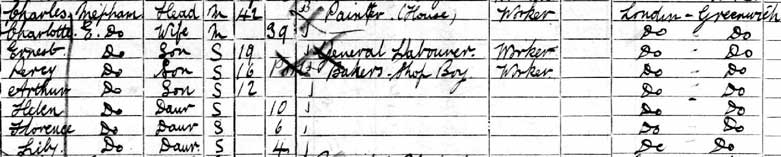 Charles Mepham Head M 42 Painter (House) Worker London - Greenwich
Charlotte E. Do Wife M 39 Do Do
Ernest Do Son S 19 General Labourer Worker Do Do
Percy Do Son S 16 Bakers Shop Boy Worker Do Do
Arthur Do Son S 12 Do Do
Helen Do Daur S 10 Do Do
Florence Do Daur S 6 Do Do
Lily Do Daur S 4 Do Do